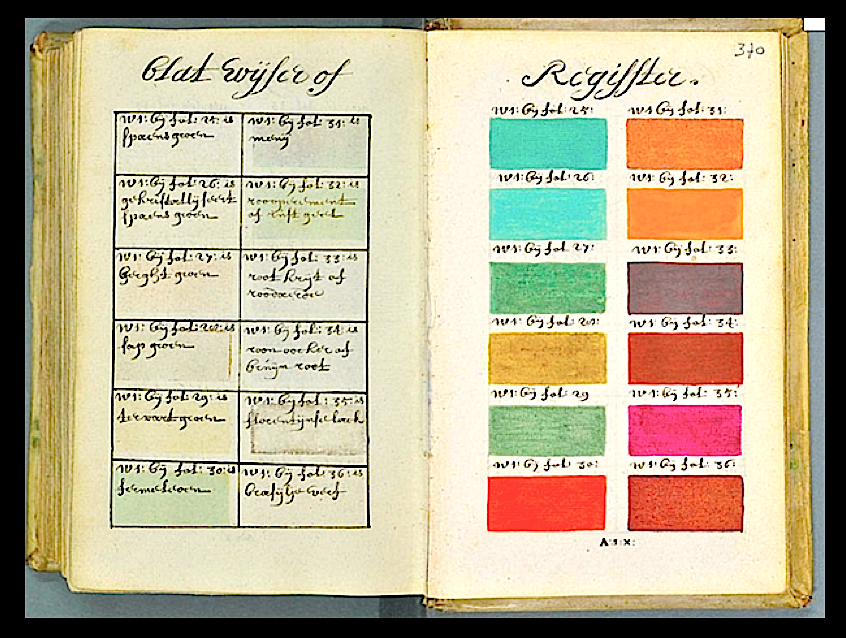 Blat Wijser of
w1: bij fol: 25: is
spaens groen
w1: bij fol: 31: is
menij
w1: bij fol: 26: is
gekristallyseert
spaens groen
w1: bij fol: 32: is
of rust geel
w1: bij fol: 27: is
berght groen
w1: bij fol: 33: is
root krijt of
w1: bij fol: 28: is
sap groen
w1: bij fol: 34: is
roon oocker of
bruijn root
w1: bij fol: 29: is
tervart groen
w1: bij fol: 35: is
florentijnse lack
w1: bij fol: 30: is
fermelioen
w1: bij fol: 36: is
brasijlje verf
370
Regisster.
w1: bij fol: 25:
w1: bij fol: 31:
w1: bij fol: 26:
w1: bij fol: 32:
w1: bij fol: 27:
w1: bij fol: 33:
w1: bij fol: 28:
w1: bij fol: 34:
w1: bij fol: 29
w1: bij fol: 35:
w1: bij fol: 30:
w1: bij fol: 36: